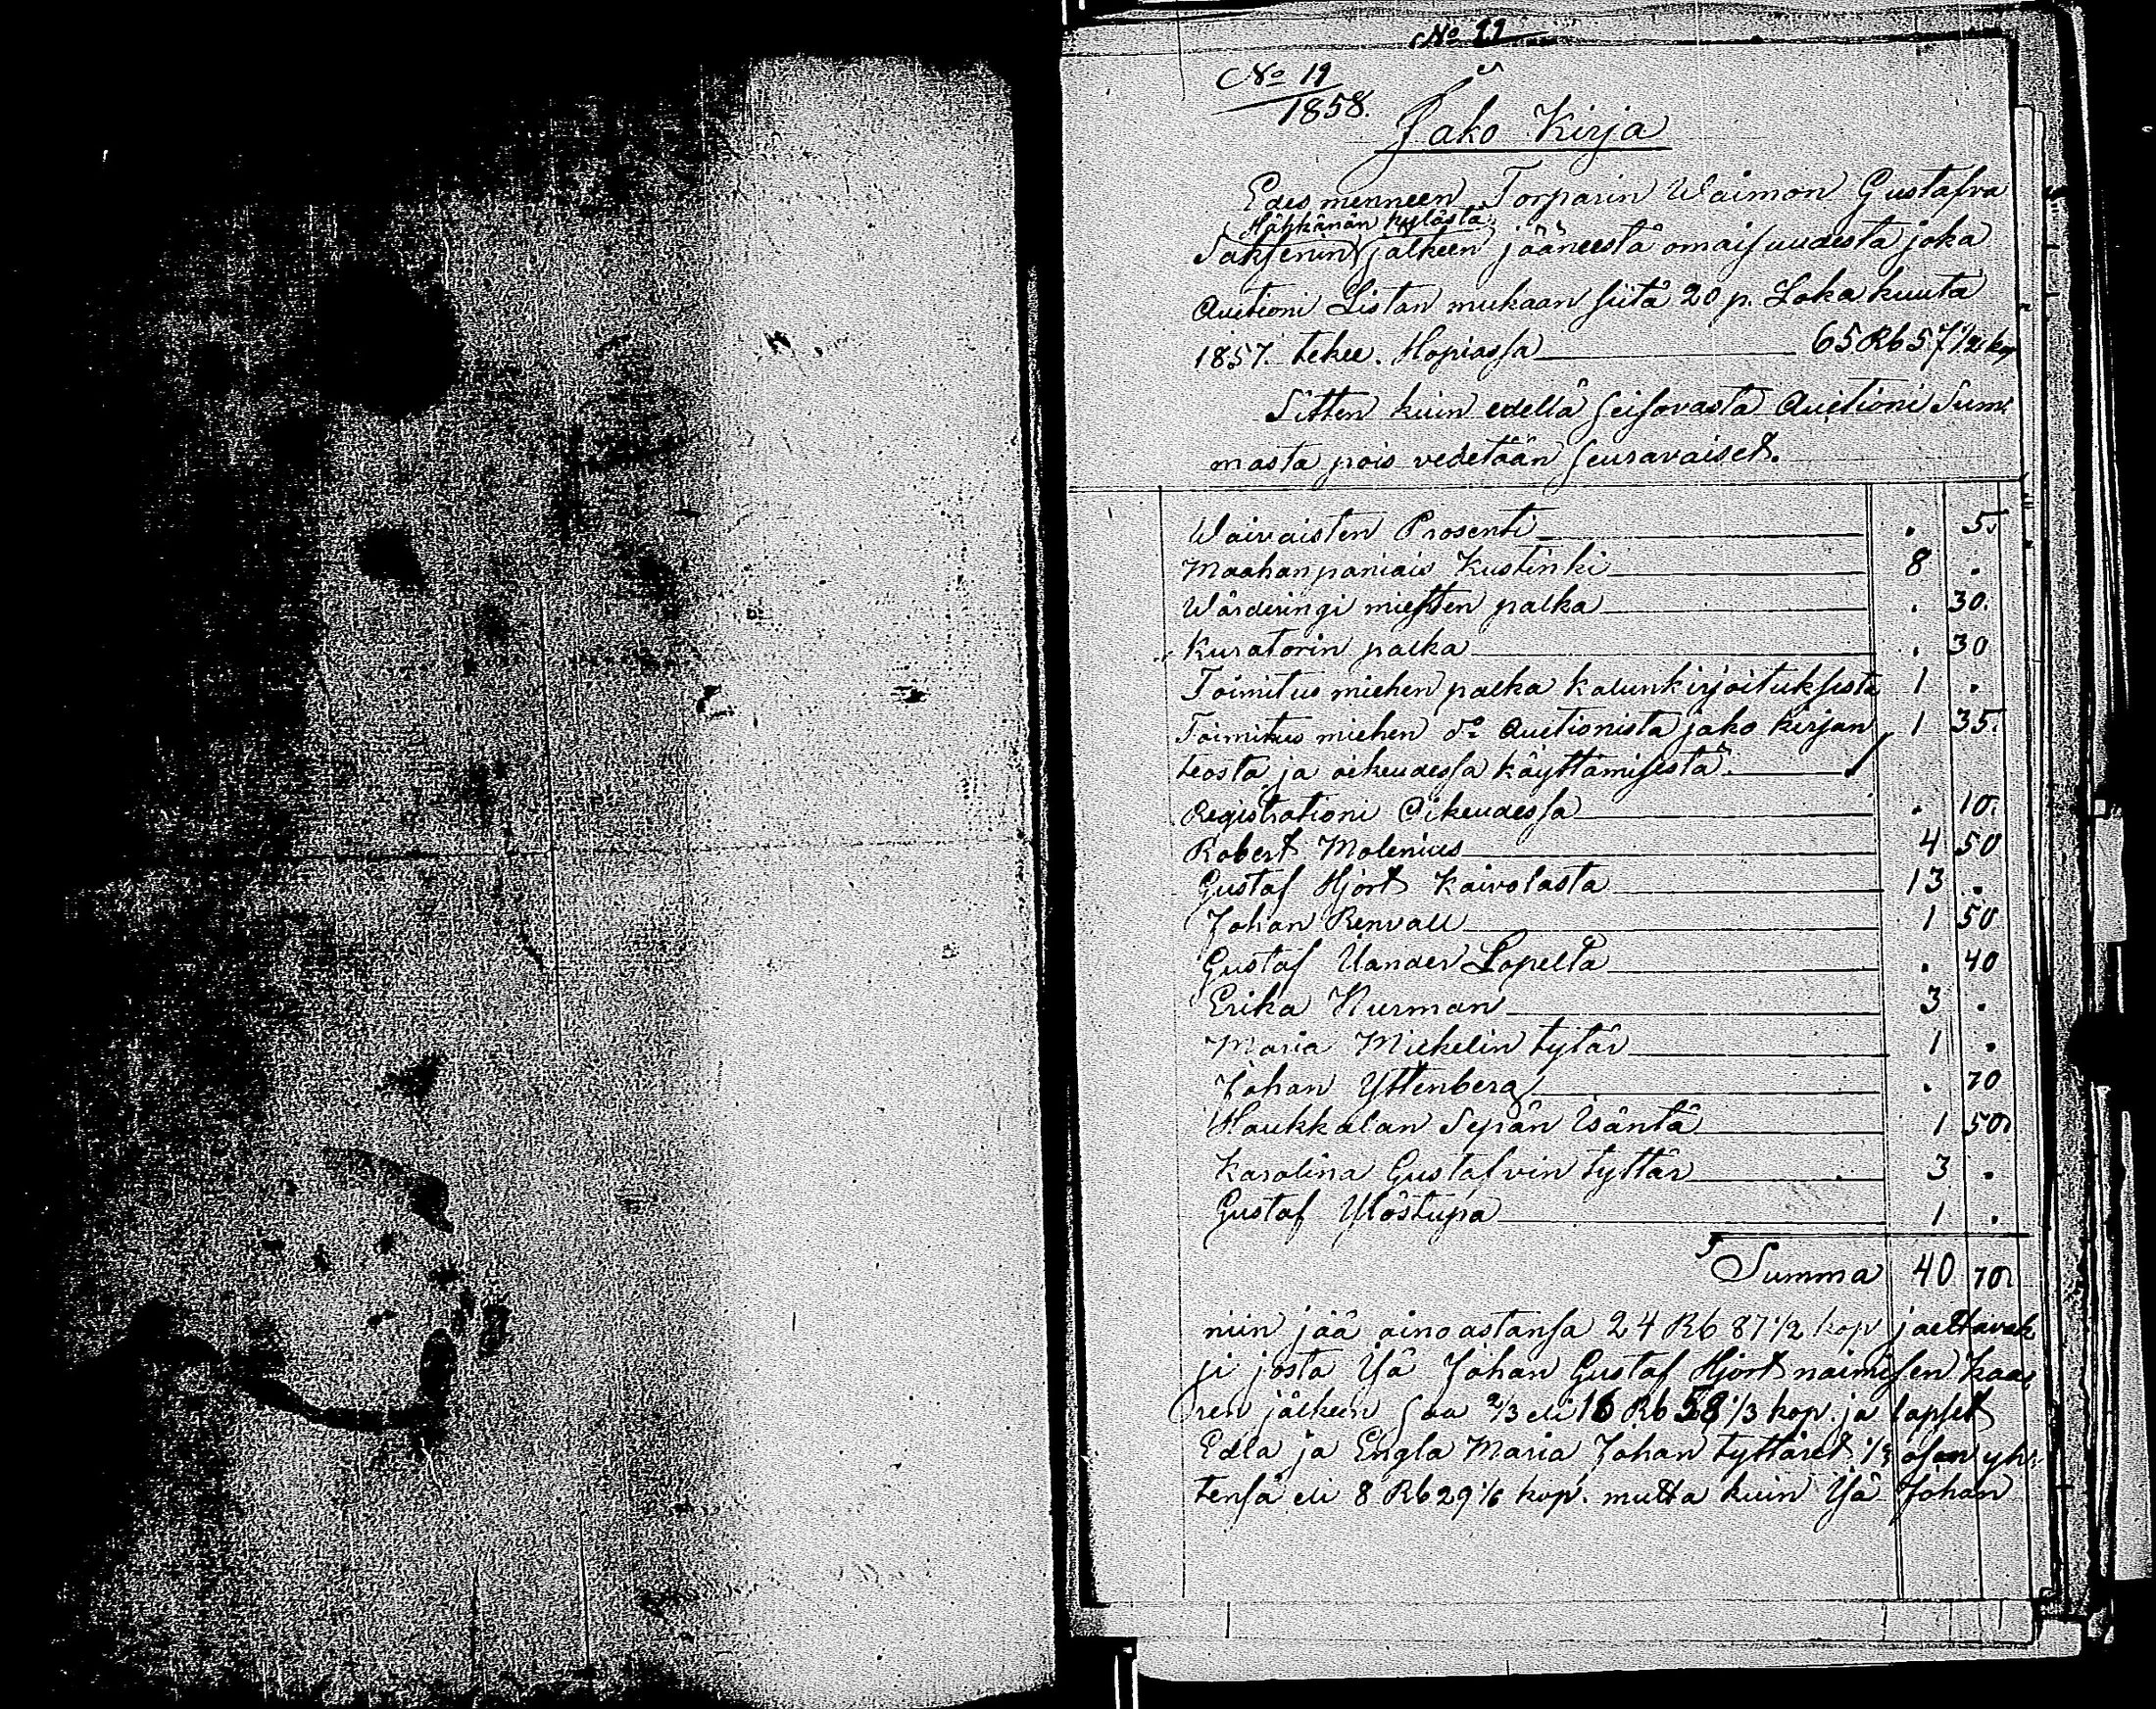 No 11
No 19
1858.
Jako Kirja
Edes menneen Torparin Waimon Gustafva
Hähkänän kylästä
Saksenin jälkeen jääneestä omaisuudesta joka
Auctioni Listan mukaan siitä 20 p. Lokakuuta
1857. tekee. Hopiassa 65 Rb 57 1/2 kop
Sitten kuin edellä seisovasta Auctioni Sum-
masta pois vedetään seuravaiset.
Waivaisten Prosenti . 5.
Maahanpaniais Kustinki 8 .
Wärderingi miesten palka . 30.
Kuratorin palka . 30
Toimitus miehen palka kalunkirjoituksesta 1 .
Toimitus miehen do Auctionista jako kirjan 1 35.
teosta ja oikeudessa käyttämisestä.
Registrationi Oikeudessa . 10.
Robert Molenius 4 50
Gustaf Hjort Kaivolasta 13 .
Johan Renvall 1 50
Gustaf Uander Lopelta . 40
Erika Nurman 3 .
Maria Mickelin tytär 1 .
Johan Yttenberg . 70
Haukkalan Sepän Isäntä 1 50.
Karolina Gustafvin tyttär 3 .
Gustaf Ylöstupa 1 .
Summa 40 70
niin jää ainoastansa 24 Rb 87 1/2 kop jaettavak
si josta Isä Johan Gustaf Hjort naimisen Kaa
ren jälkeen saa 2/3 eli 16 Rb 58 1/3 kop. ja lapset
Edla ja Engla Maria Johan tyttäret 1/3 osan yh-
tensä eli 8 Rb 29 1/6 kop. mutta kuin Isä Johan